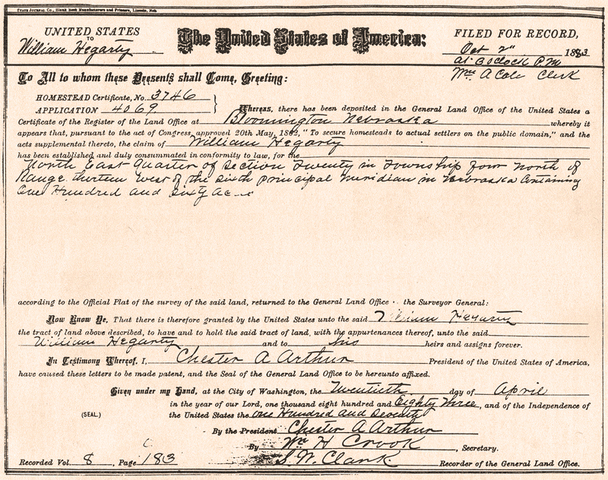 UNITED STATES
TO
William Hegarty
The United States of America:
FILED FOR RECORD,
Oct 2" 1883
at 3 o'clock P.M
Wm A Cole Clerk
To All to whom these Presents shall Come, Greeting:
HOMESTEAD Certificate, No. 3746
APPLICATION 4069
Whereas, there has been deposited in the General Land Office of the United States a
Certificate of the Register of the Land Office at Bloomington Nebraska whereby it
appears that, pursuant to the act of Congress, approved 20th May, 1862, "To secure homesteads to actual settlers on the public domain," and the
acts supplemental thereto, the claim of William Hegarty
has been established and duly consummated in conformity to law, for the
North East Quarter of Section Twenty in Township four North of
Range thirteen West of the Sixth Principal Meridian in Nebraska Containing
One Hundred and Sixty acres
according to the Official Plat of the survey of the said land, returned to the General Land Office the Surveyor General:
Now Know Ye, That there is therefore granted by the United States unto the said William Hegarty
the tract of land above described, to have and to hold the said tract of land, with the appurtenances thereof, unto the said
William Hegarty and to his heirs and assigns forever.
In Testimony Whereof, I, Chester A Arthur President of the United States of America,
have caused these letters to be made patent, and the Seal of the General Land Office to be hereunto affixed.
Given under my Hand, at the City of Washington, the Twentieth day of April
in the year of our Lord, one thousand eight hundred and Eighty Three, and of the Independence of
(SEAL.) the United States the One Hundred and Seventh
By the President Chester A Arthur
By Wm H Crook, Secretary.
Recorded Vol. 8, Page 183 S. W. Clark Recorder of the General Land Office.